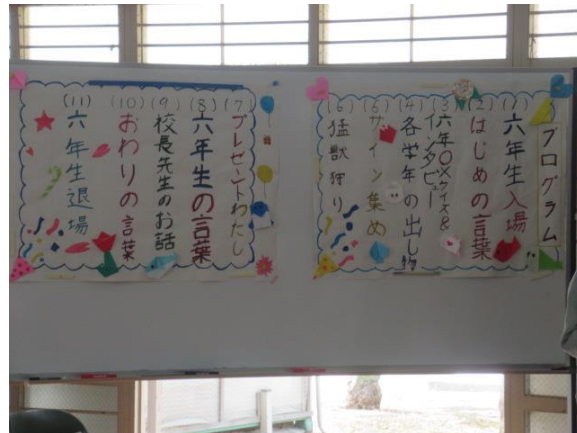 プログラム
(1)六年生入場
(2)はじめの言葉
(3)六年○×クイズ&
インタビュー
(4)各学年の出し物
(5)サイン集め
(6)猛獣狩り
(7)プレゼントわたし
(8)六年生の言葉
(9)校長先生のお話
(10)おわりの言葉
(11)六年生退場